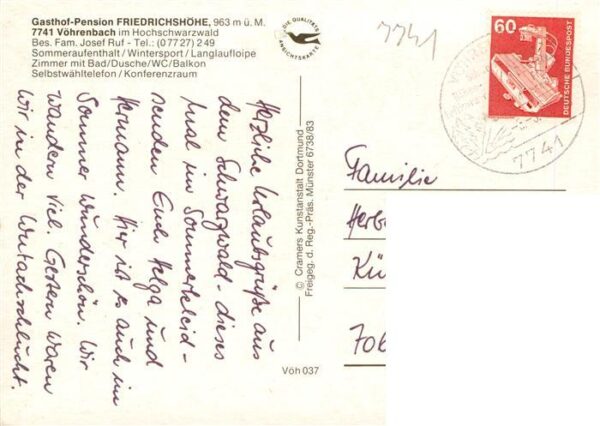 Gasthof-Pension FRIEDRICHSHÖHE, 963 m ü. M.
7741 Vöhrenbach im Hochschwarzwald
Bes. Fam. Josef Ruf - Tel.: (07727) 249
Sommeraufenthalt / Wintersport / Langlaufloipe
Zimmer mit Bad/Dusche/WC/Balkon
Selbstwähltelefon / Konferenzraum
DIE QUALITÄTS
ANSICHTSKARTE
7741
60
DEUTSCHE BUNDESPOST
7741
Herzliche Urlaubsgrüße aus
dem Schwarzwald - dieses
mal im Sommerkleid -
senden Euch Helga und
Hermann. Hier ist es auch im
Sommer wunderschön. Wir
wandern viel. Gestern waren
wir in der Wutachschlucht.
© Cramers Kunstanstalt Dortmund
Freigeg. d. Reg.-Präs. Münster 6738/83
Vöh 037
Familie
Herb
Kü
706